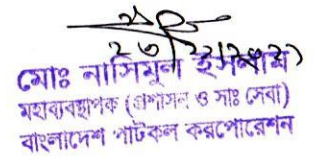 মোঃ নাসিমুল ইসলাম
মহাব্যবস্থাপক (প্রশাসন ও সাঃ সেবা)
বাংলাদেশ পাটকল করপোরেশন